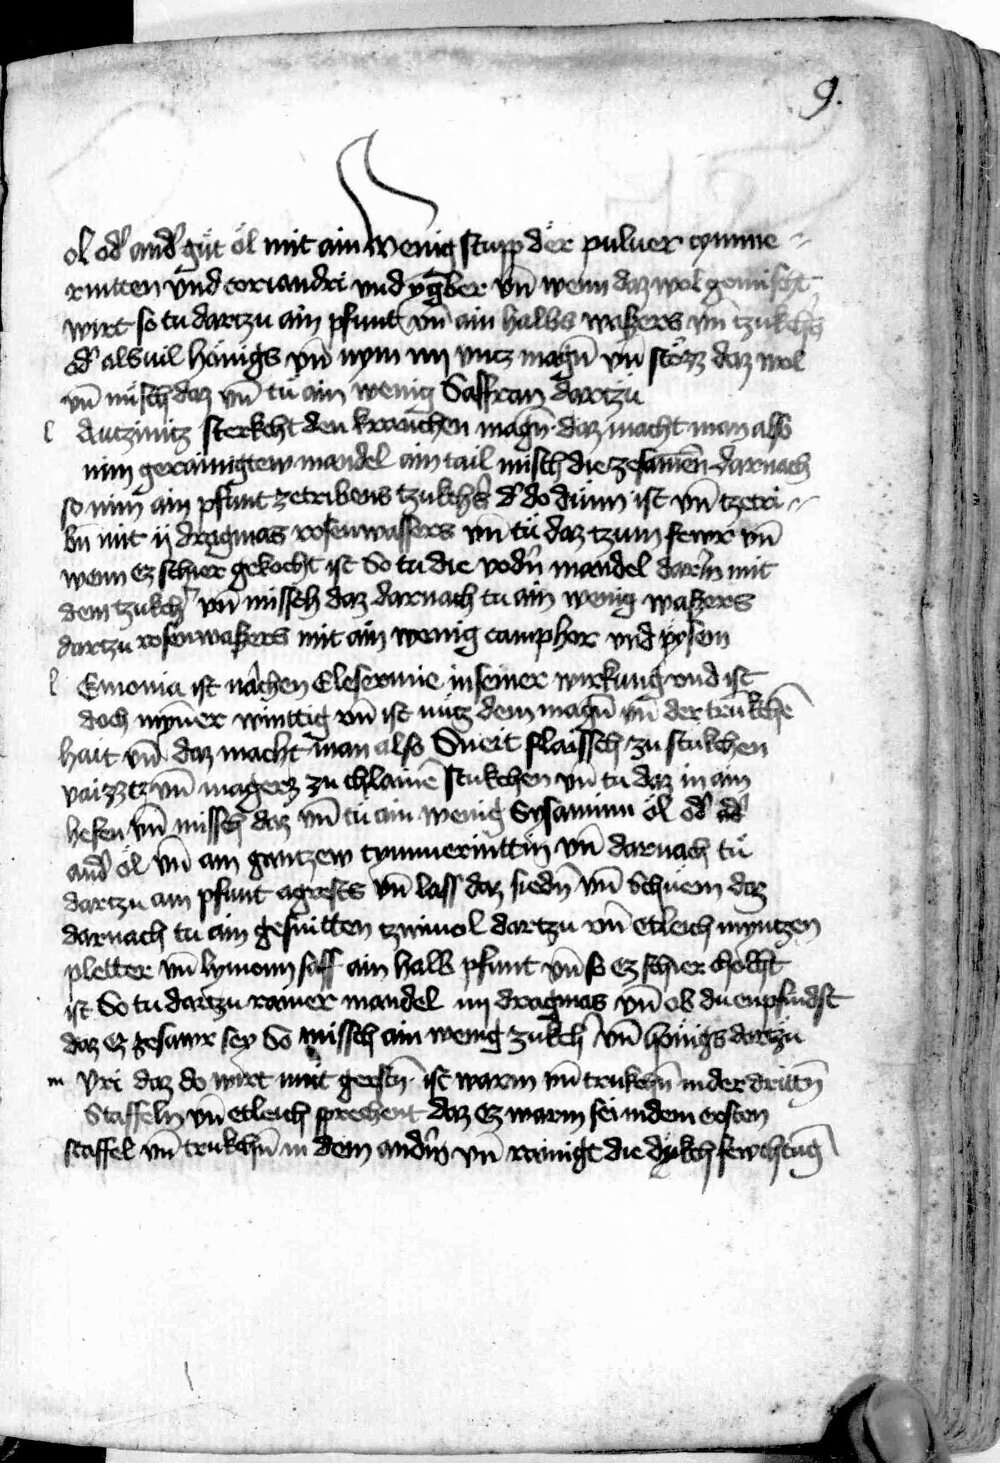 9.
ol od͛ and͛ gůt öl mit ain wenig stupp der puluer cymme=
rintten vnd coriandri vnd ẏgber vn̄ wenn daz wol gemischt
wirt so tu dartzu ain pfunt vn̄ ain halbs waßers vn̄ tzukch͛s
od͛ alsuil hönigs vn̄ nym iiij vntz maḡn vn̄ stözz daz wol
vn̄ misch daz vn̄ tů ain wenig Saffran dartzů
l autzinitz sterkcht den kranchen maḡn. daz macht man also
nim gerainigtew mandel ain tail misch die zesamen̄ darnach
so nim ain pfunt zetribens tzukch͛s d͛ do dünn ist vn̄ tzetri=
bn̄ mit ij dragmas rosenwassers vn̄ tů daz tzum fewr vn̄
wenn ez schier gekocht ist So tu die vodn̄ mandel darīn mit
dem tzukch͛ vn̄ missch daz darnach tu ain wenig waßers
dartzu rosenwaßers mit ain wenig camphor vnd pysem
l Emonia ist nachen Eleserinie in seiner wirkung vnd ist
doch mynner winttig vn̄ ist nütz dem maḡn vn̄ der trukchē
hait vn̄ daz macht man also Sneit flaissch zu stukchen
vaizztz vn̄ magerz zu chlainē stukchen vn̄ tu daz in ain
hefen vn̄ missch daz vn̄ tů ain wenig Sysaminn öl od͛
and͛ öl vn̄ ain gantzew cymmerinttin vn̄ darnach tů
dartzu ain pfunt agrests vn̄ lass daz siedn̄ vn̄ Schuem daz
darnach tu ain gesnitten tzwiuol dartzu vn̄ etleich myntzen
pletter vn̄ lymony saff ain halb pfunt vn̄ so ez schier chocht
ist So tu dartzu rainer mandel iiij dragmas vn̄ ob du enpfindst
daz ez zesawr sey So missch ain wenig zukch͛ vn̄ hönigs dartzů
m Vri daz do wirt mit gerstn̄. ist warm vn̄ trukchn̄ in der drittn̄
Staffeln vn̄ etleich sprechent daz ez warm sei in dem ersten
staffel vn̄ trukchn̄ in dem andn̄ vn̄ rainigt die dykch fewchtūg